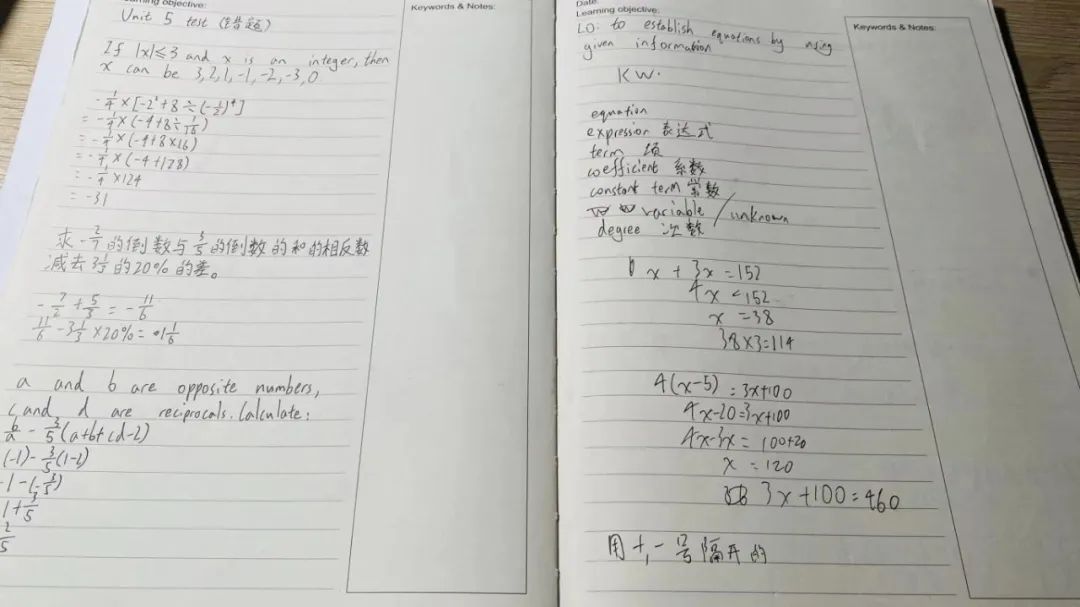 Learning objective:
Keywords & Notes:
Unit 5 test (错题)
If |x|≤3 and x is an integer, then
x can be 3, 2, 1, -1, -2, -3, 0
-1/4×[-2²+8÷(-1/2)⁴]
= -1/4×(-4+8÷1/16)
= -1/4×(-4+8×16)
= -1/4×(-4+128)
= -1/4×124
= -31
求-2/7的倒数与3/5的倒数的和的相反数
减去3 1/3的20%的差。
-7/2+5/3=-11/6
11/6-3 1/3×20%=1 1/6
a and b are opposite numbers,
c and d are reciprocals. Calculate:
b/a-3/5(a+b+cd-2)
(-1)-3/5(1-2)
-1-(-3/5)
1+3/5
2/5
Date:
Learning objective:
Keywords & Notes:
LO: to establish equations by using
given information
KW.
equation
expression 表达式
term 项
coefficient 系数
constant term 常数
variable / unknown
degree 次数
x+3x=152
4x=152
x=38
38×3=114
4(x-5)=3x+100
4x-20=3x+100
4x-3x=100+20
x=120
3x+100=460
用+,-号隔开的